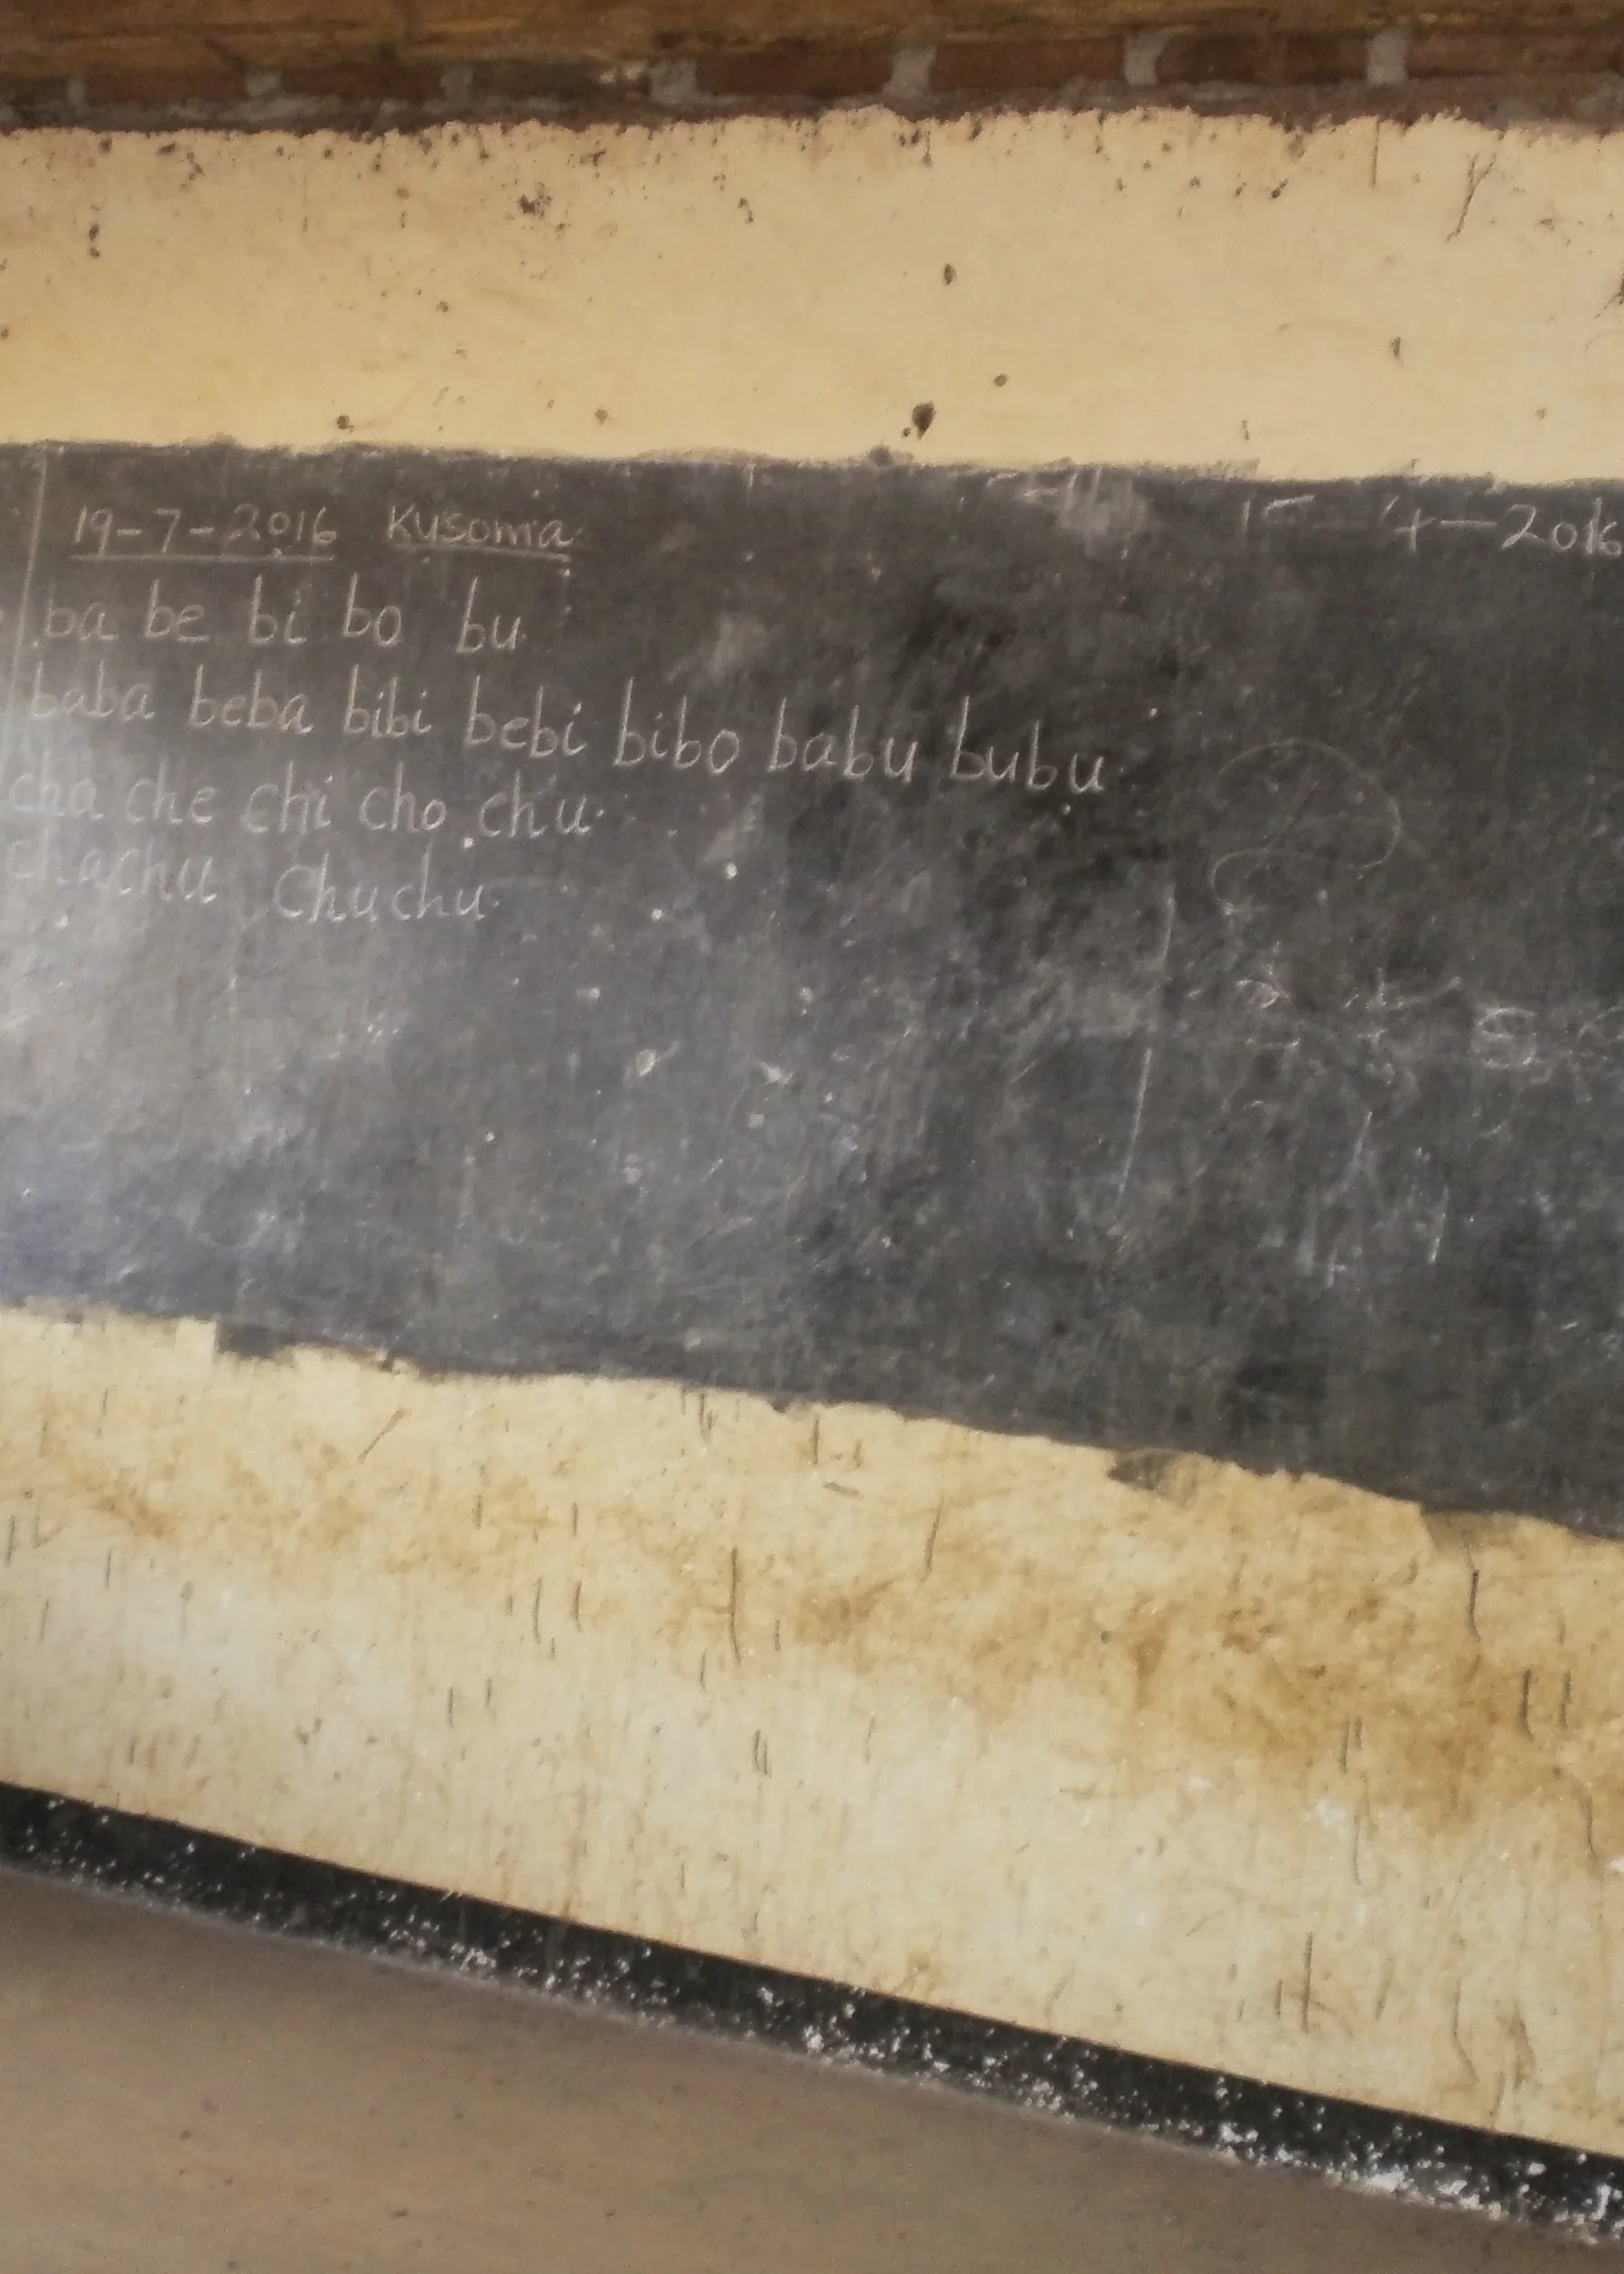 19-7-2016 Kusoma
ba be bi bo bu
baba beba bibi bebi bibo babu bubu
cha che chi cho chu
chachu chuchu
2016